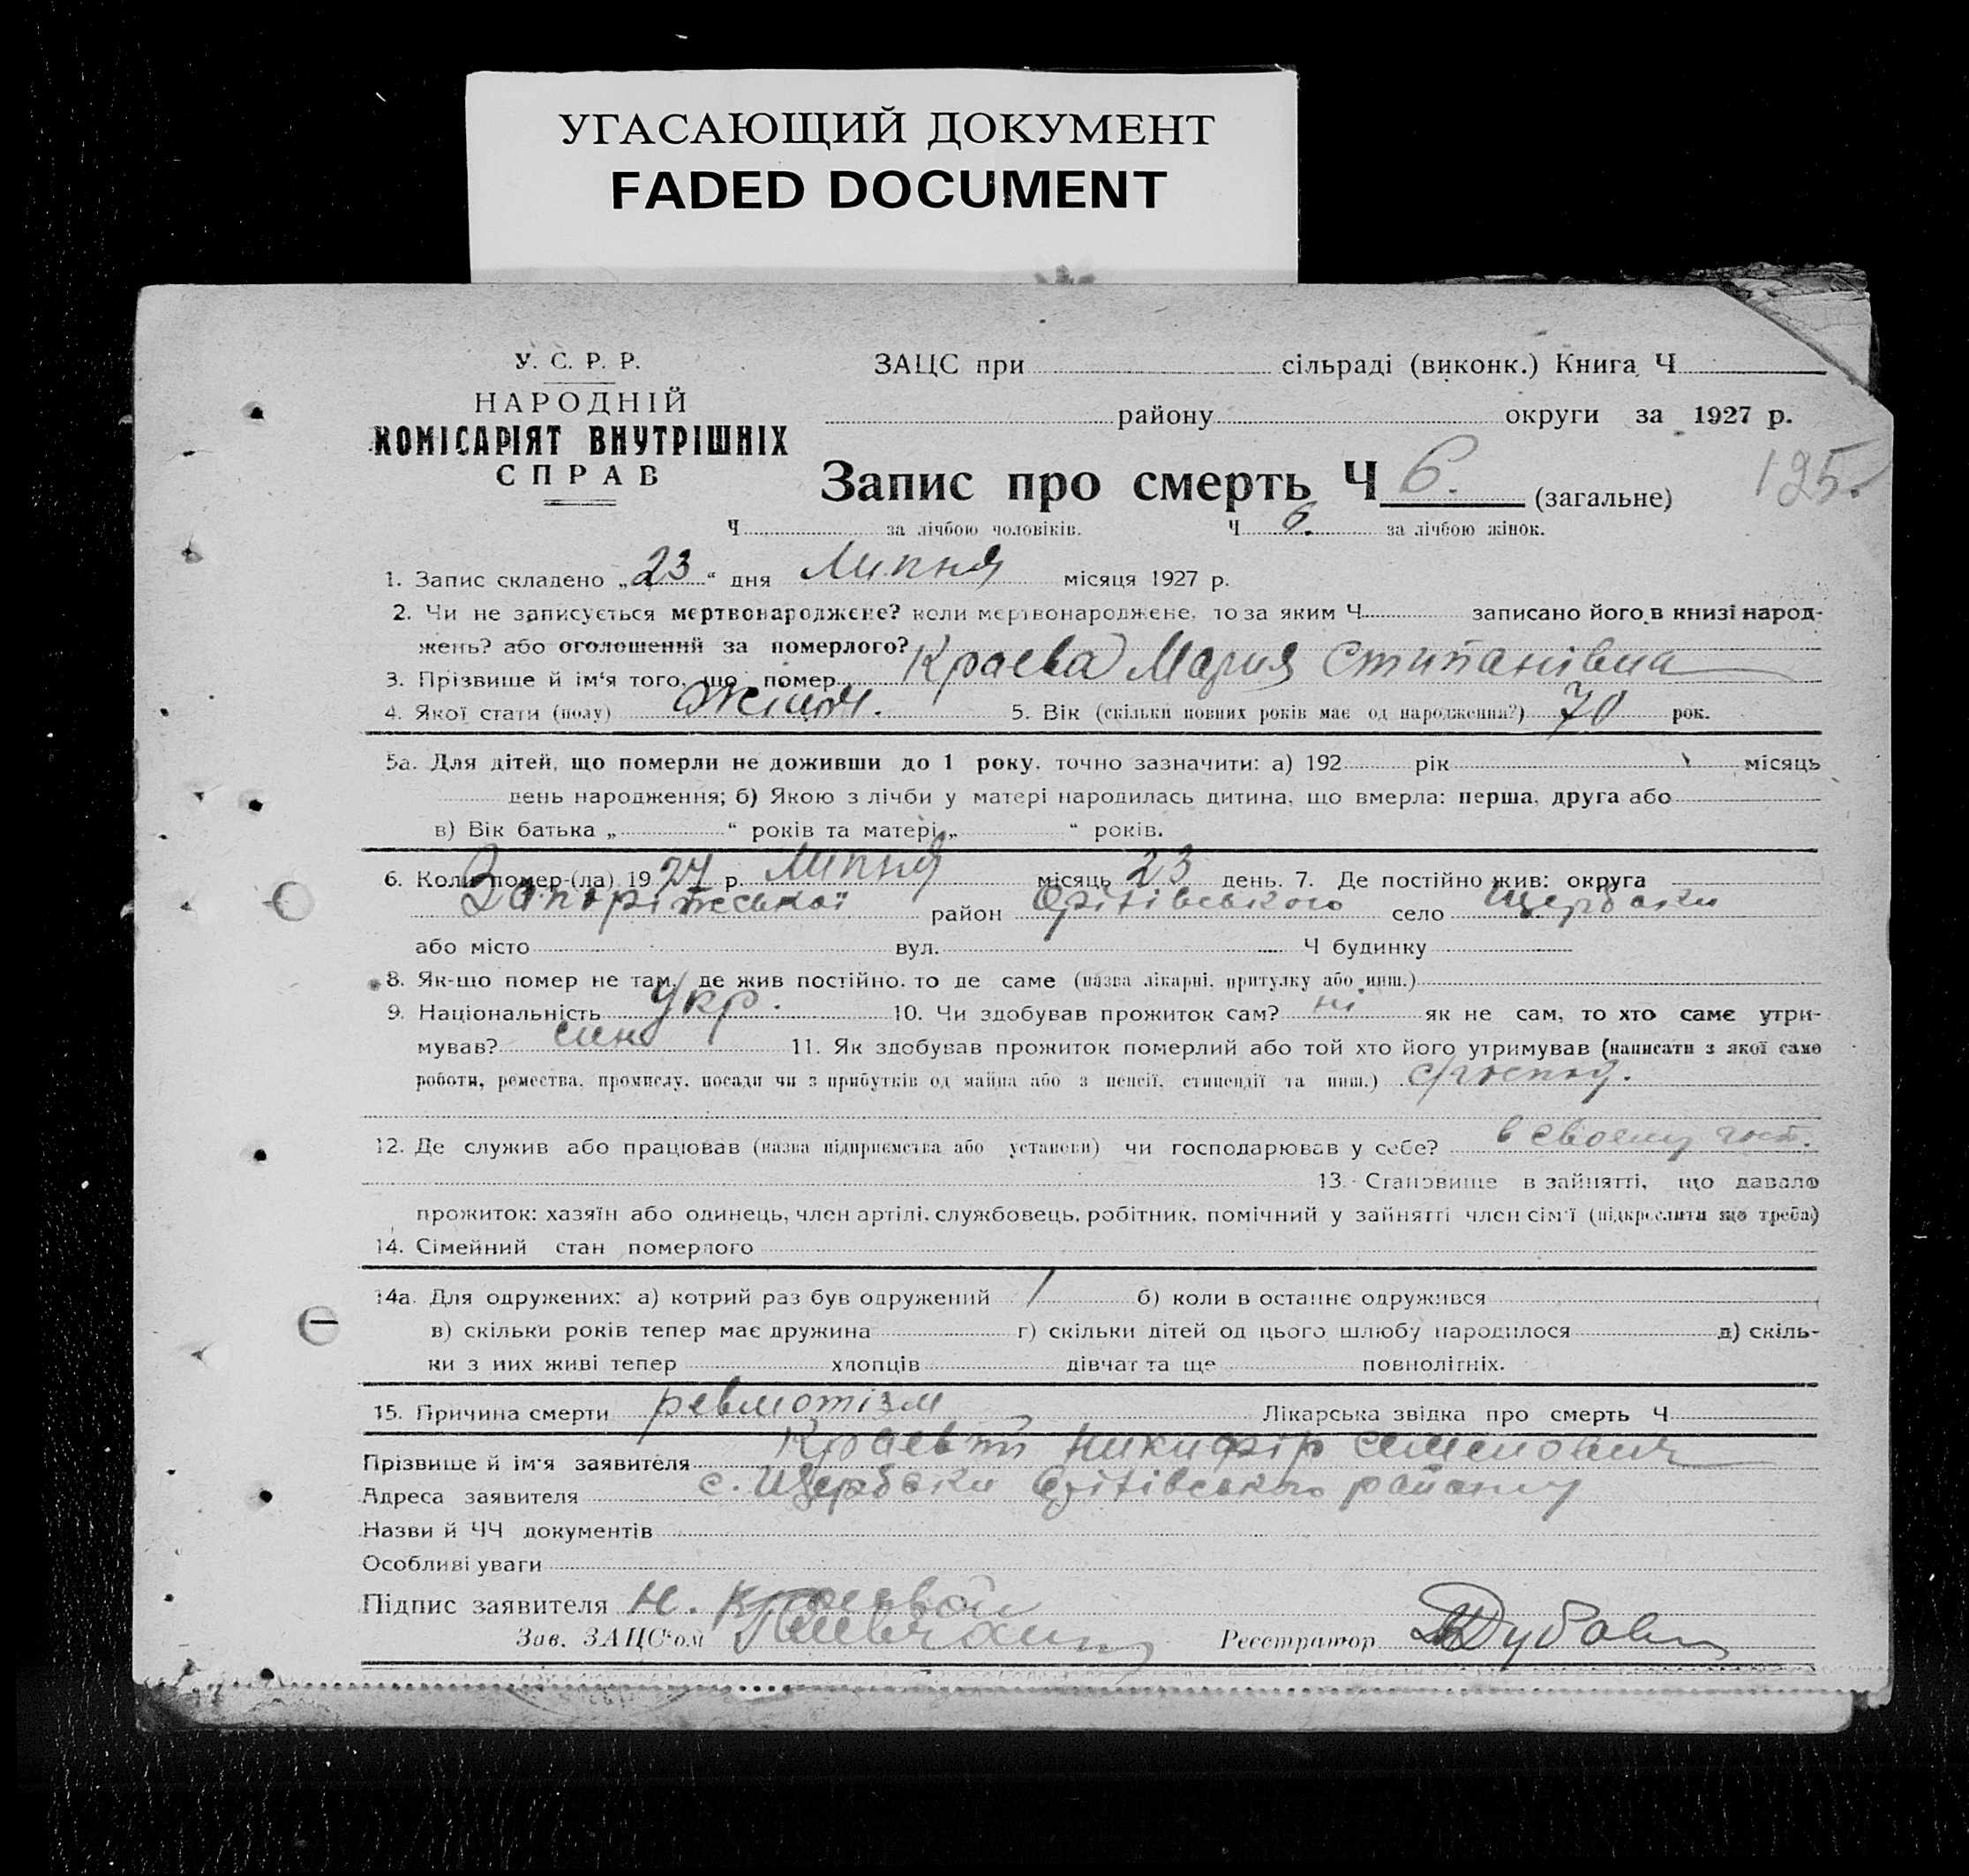 УГАСАЮЩИЙ ДОКУМЕНТ
FADED DOCUMENT
У. С. Р. Р.
НАРОДНІЙ
КОМІСАРІЯТ ВНУТРІШНІХ
СПРАВ
ЗАЦС при сільраді (виконк.) Книга Ч
району округи за 1927 р.
Запис про смерть Ч 6. (загальне)
195.
Ч за лічбою чоловіків. Ч 6. за лічбою жінок.
1. Запис складено „23“ дня Липня місяця 1927 р.
2. Чи не записується мертвонароджене? коли мертвонароджене, то за яким Ч записано його в книзі народ-
жень? або оголошений за померлого?
3. Прізвище й ім'я того, що помер Краева Мария Стипанівна
4. Якої стати (полу) жіноч. 5. Вік (скільки повних років має од народження?) 70 рок.
5а. Для дітей, що померли не доживши до 1 року, точно зазначити: а) 192 рік місяць
день народження; б) Якою з лічби у матері народилась дитина, що вмерла: перша, друга або
в) Вік батька „ “ років та матері „ “ років.
6. Коли помер-(ла) 1927 р. Липня місяць 23 день. 7. Де постійно жив: округа
Запоріжської район Оріхівського село Щербаки
або місто вул. Ч будинку
8. Як-що помер не там, де жив постійно, то де саме (назва лікарні, притулку або инш.)
9. Національність Укр. 10. Чи здобував прожиток сам? ні як не сам, то хто саме утри-
мував? син 11. Як здобував прожиток померлий або той хто його утримував (написати з якої саме
роботи, ремества, промислу, посади чи з прибутків од майна або з пенсії, стипендії та инш.)
12. Де служив або працював (назва підприємства або установи) чи господарював у себе? в своему госп.
13. Становище в зайнятті, що давало
прожиток: хазяїн або одинець, член артілі, службовець, робітник, помічний у зайнятті член сім'ї (підкреслити що треба)
14. Сімейний стан померлого
14а. Для одружених: а) котрий раз був одружений 1 б) коли в останнє одружився
в) скільки років тепер має дружина г) скільки дітей од цього шлюбу народилося д) скіль-
ки з них живі тепер хлопців дівчат та ще повнолітніх.
15. Причина смерти ревмотізм Лікарська звідка про смерть Ч
Прізвище й ім'я заявителя Краевий Никифір Семенович
Адреса заявителя с. Щербаки Оріхівського району
Назви й ЧЧ документів
Особливі уваги
Підпис заявителя Н. Краевой
Зав. ЗАЦС'ом Реєстратор